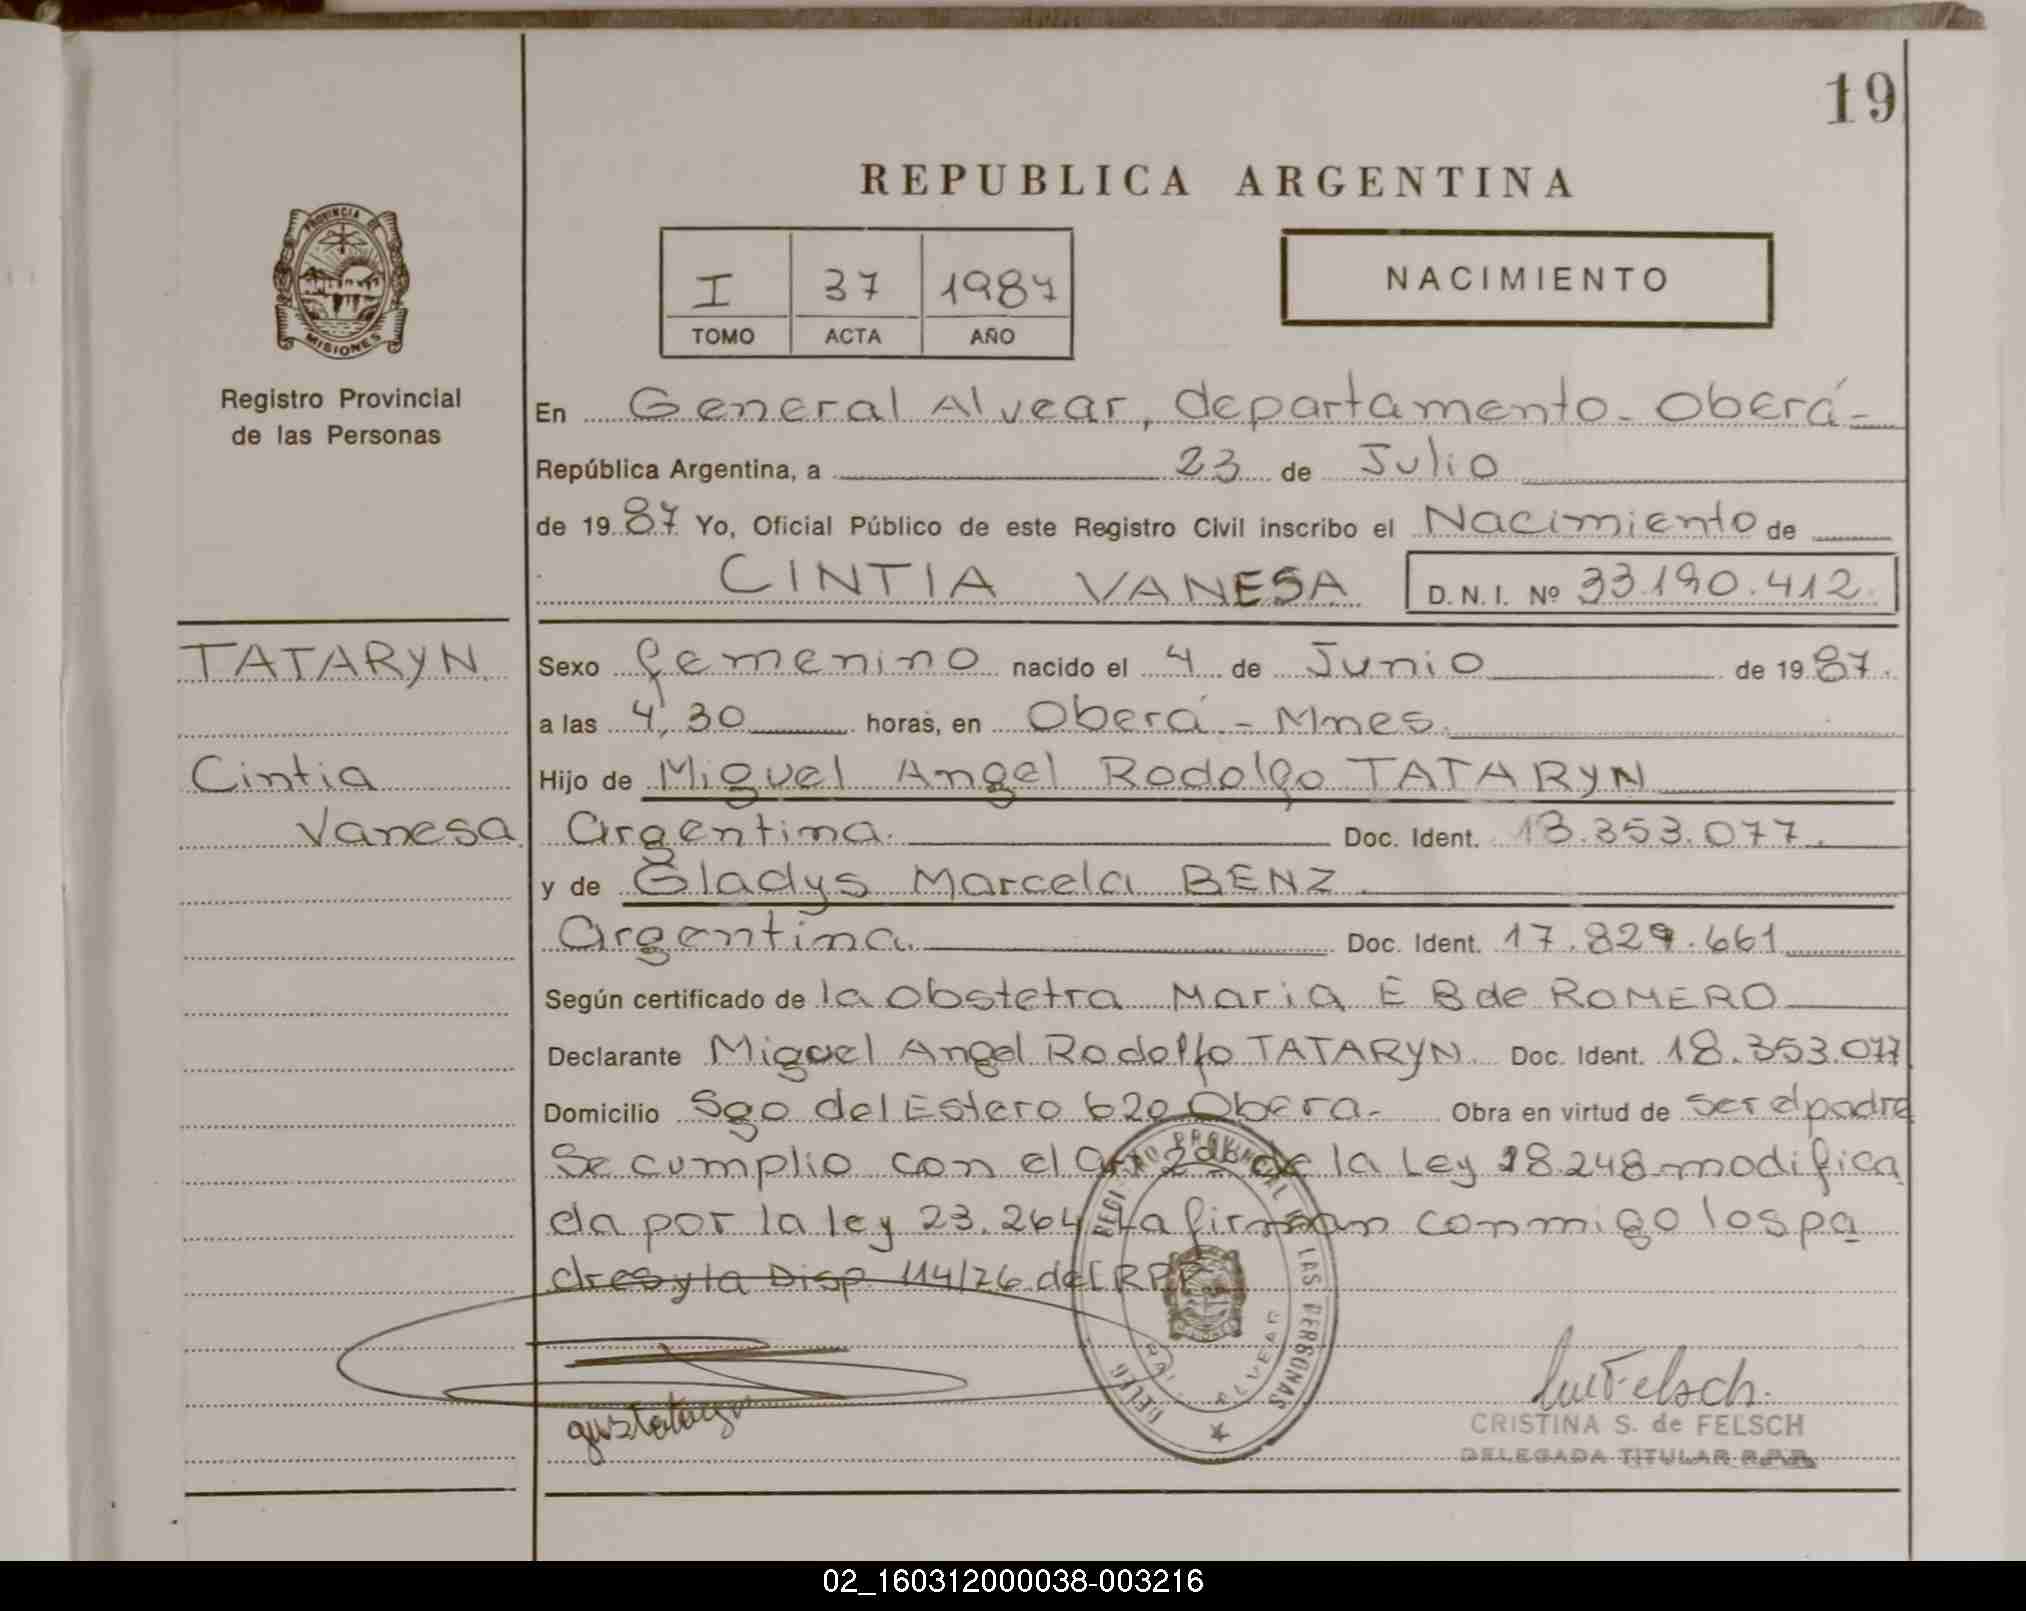 19
REPUBLICA ARGENTINA
PROVINCIA DE
MISIONES
I 37 1987
TOMO ACTA AÑO
NACIMIENTO
Registro Provincial
de las Personas
En General Alvear, departamento - Oberá -
República Argentina, a 23 de Julio
de 1987 Yo, Oficial Público de este Registro Civil inscribo el Nacimiento de
CINTIA VANESA D. N. I. Nº 33.190.412.
TATARYN
Cintia
Vanesa
Sexo femenino nacido el 4 de Junio de 1987.
a las 4,30 horas, en Oberá - Mnes.
Hijo de Miguel Angel Rodolfo TATARYN
Argentina. Doc. Ident. 18.353.077.
y de Gladys Marcela BENZ
Argentina. Doc. Ident. 17.829.661
Según certificado de la obstetra Maria E B de ROMERO
Declarante Miguel Angel Rodolfo TATARYN Doc. Ident. 18.353.077
Domicilio Sgo del Estero 620 Obera.- Obra en virtud de ser el padre
Se cumplio con el Art 2º de la Ley 18.248 modifica
da por la ley 23.264 La firman conmigo los pa
dres y la Disp. 114/76 del RPP
REGISTRO PROVINCIAL DE LAS PERSONAS
DELEG. GRAL. ALVEAR
CRISTINA S. de FELSCH
DELEGADA TITULAR R.P.P.
02_160312000038-003216